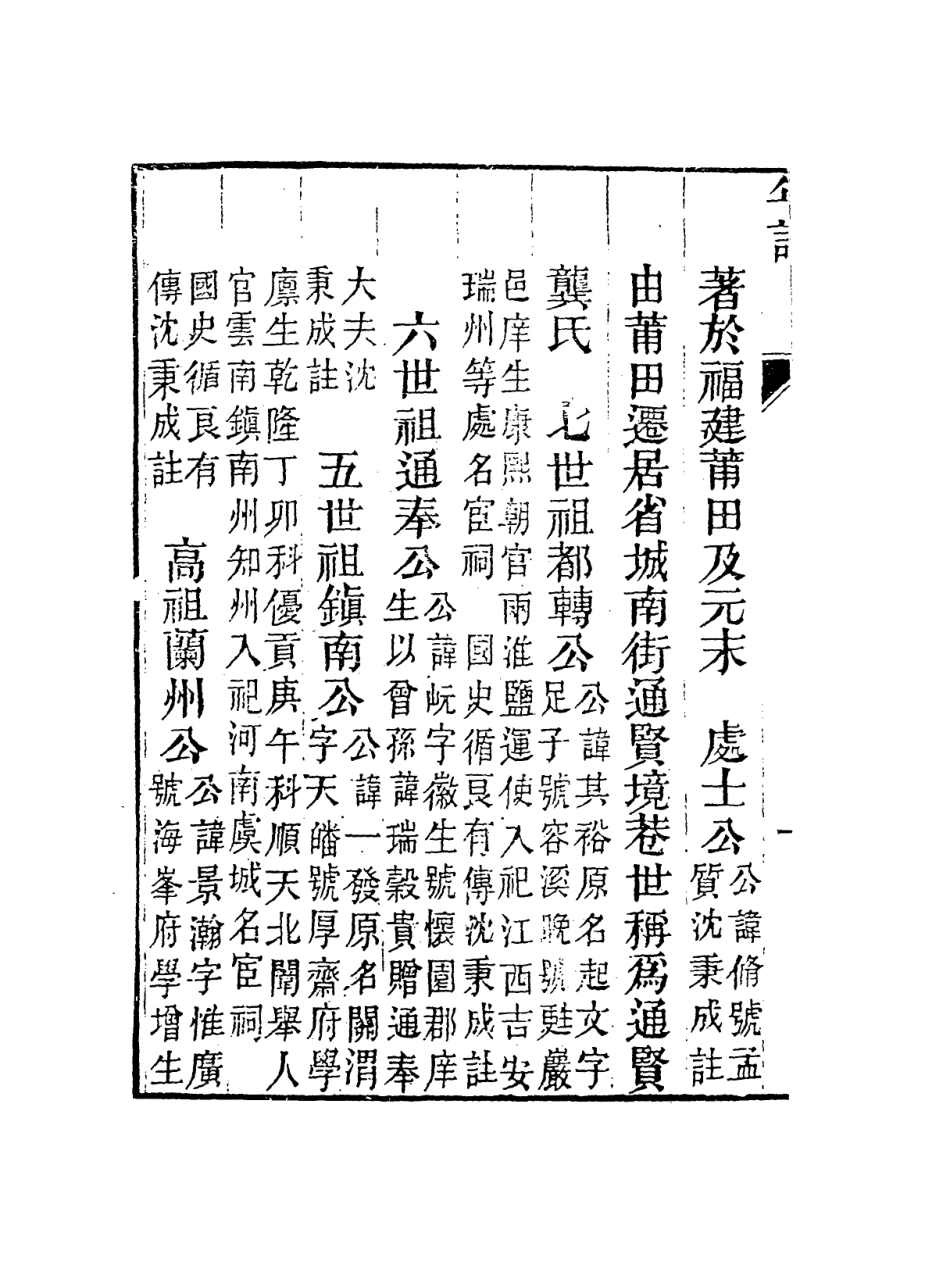 著於福建莆田及元末　處士公公諱脩號孟
質沈秉成註
由莆田遷居省城南街通賢境巷世稱爲通賢
龔氏　七世祖都轉公公諱其裕原名起文字
足子號容溪晚號甦巖
邑庠生康熙朝官兩淮鹽運使入祀江西吉安
瑞州等處名宦祠　國史循良有傳沈秉成註
六世祖通奉公公諱岏字徽生號懷園郡庠
生以曾孫諱瑞穀貴贈通奉
大夫沈
秉成註　五世祖鎭南公公諱一發原名關渭
字天皤號厚齋府學
廪生乾隆丁卯科優貢庚午科順天北闈舉人
官雲南鎭南州知州入祀河南虞城名宦祠
國史循良有
傳沈秉成註　高祖蘭州公公諱景瀚字惟廣
號海峯府學增生
一